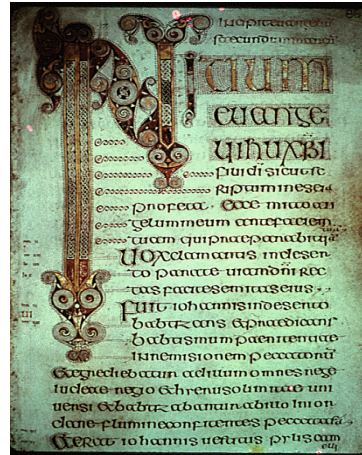 INITIUM
euange
lii ihu xpi
fili di sicut
profeta Ecce mitto an
gelum meum ante faciem
tuam qui
Uox clamantis in deser
to parate uiam dni rec
tas facite semitas eius
Fuit iohannis in deserto
babtizans & praedicans
babtismum paenitentiae
in remisionem peccatorum
& egrediebatur ad illum omnes
iudeae regio & hierusolimitae uni
uersi & babtizabantur ab illo in ior
dane flumine confitentes peccata sua
& erat iohannis uestitus pilis cam
eli